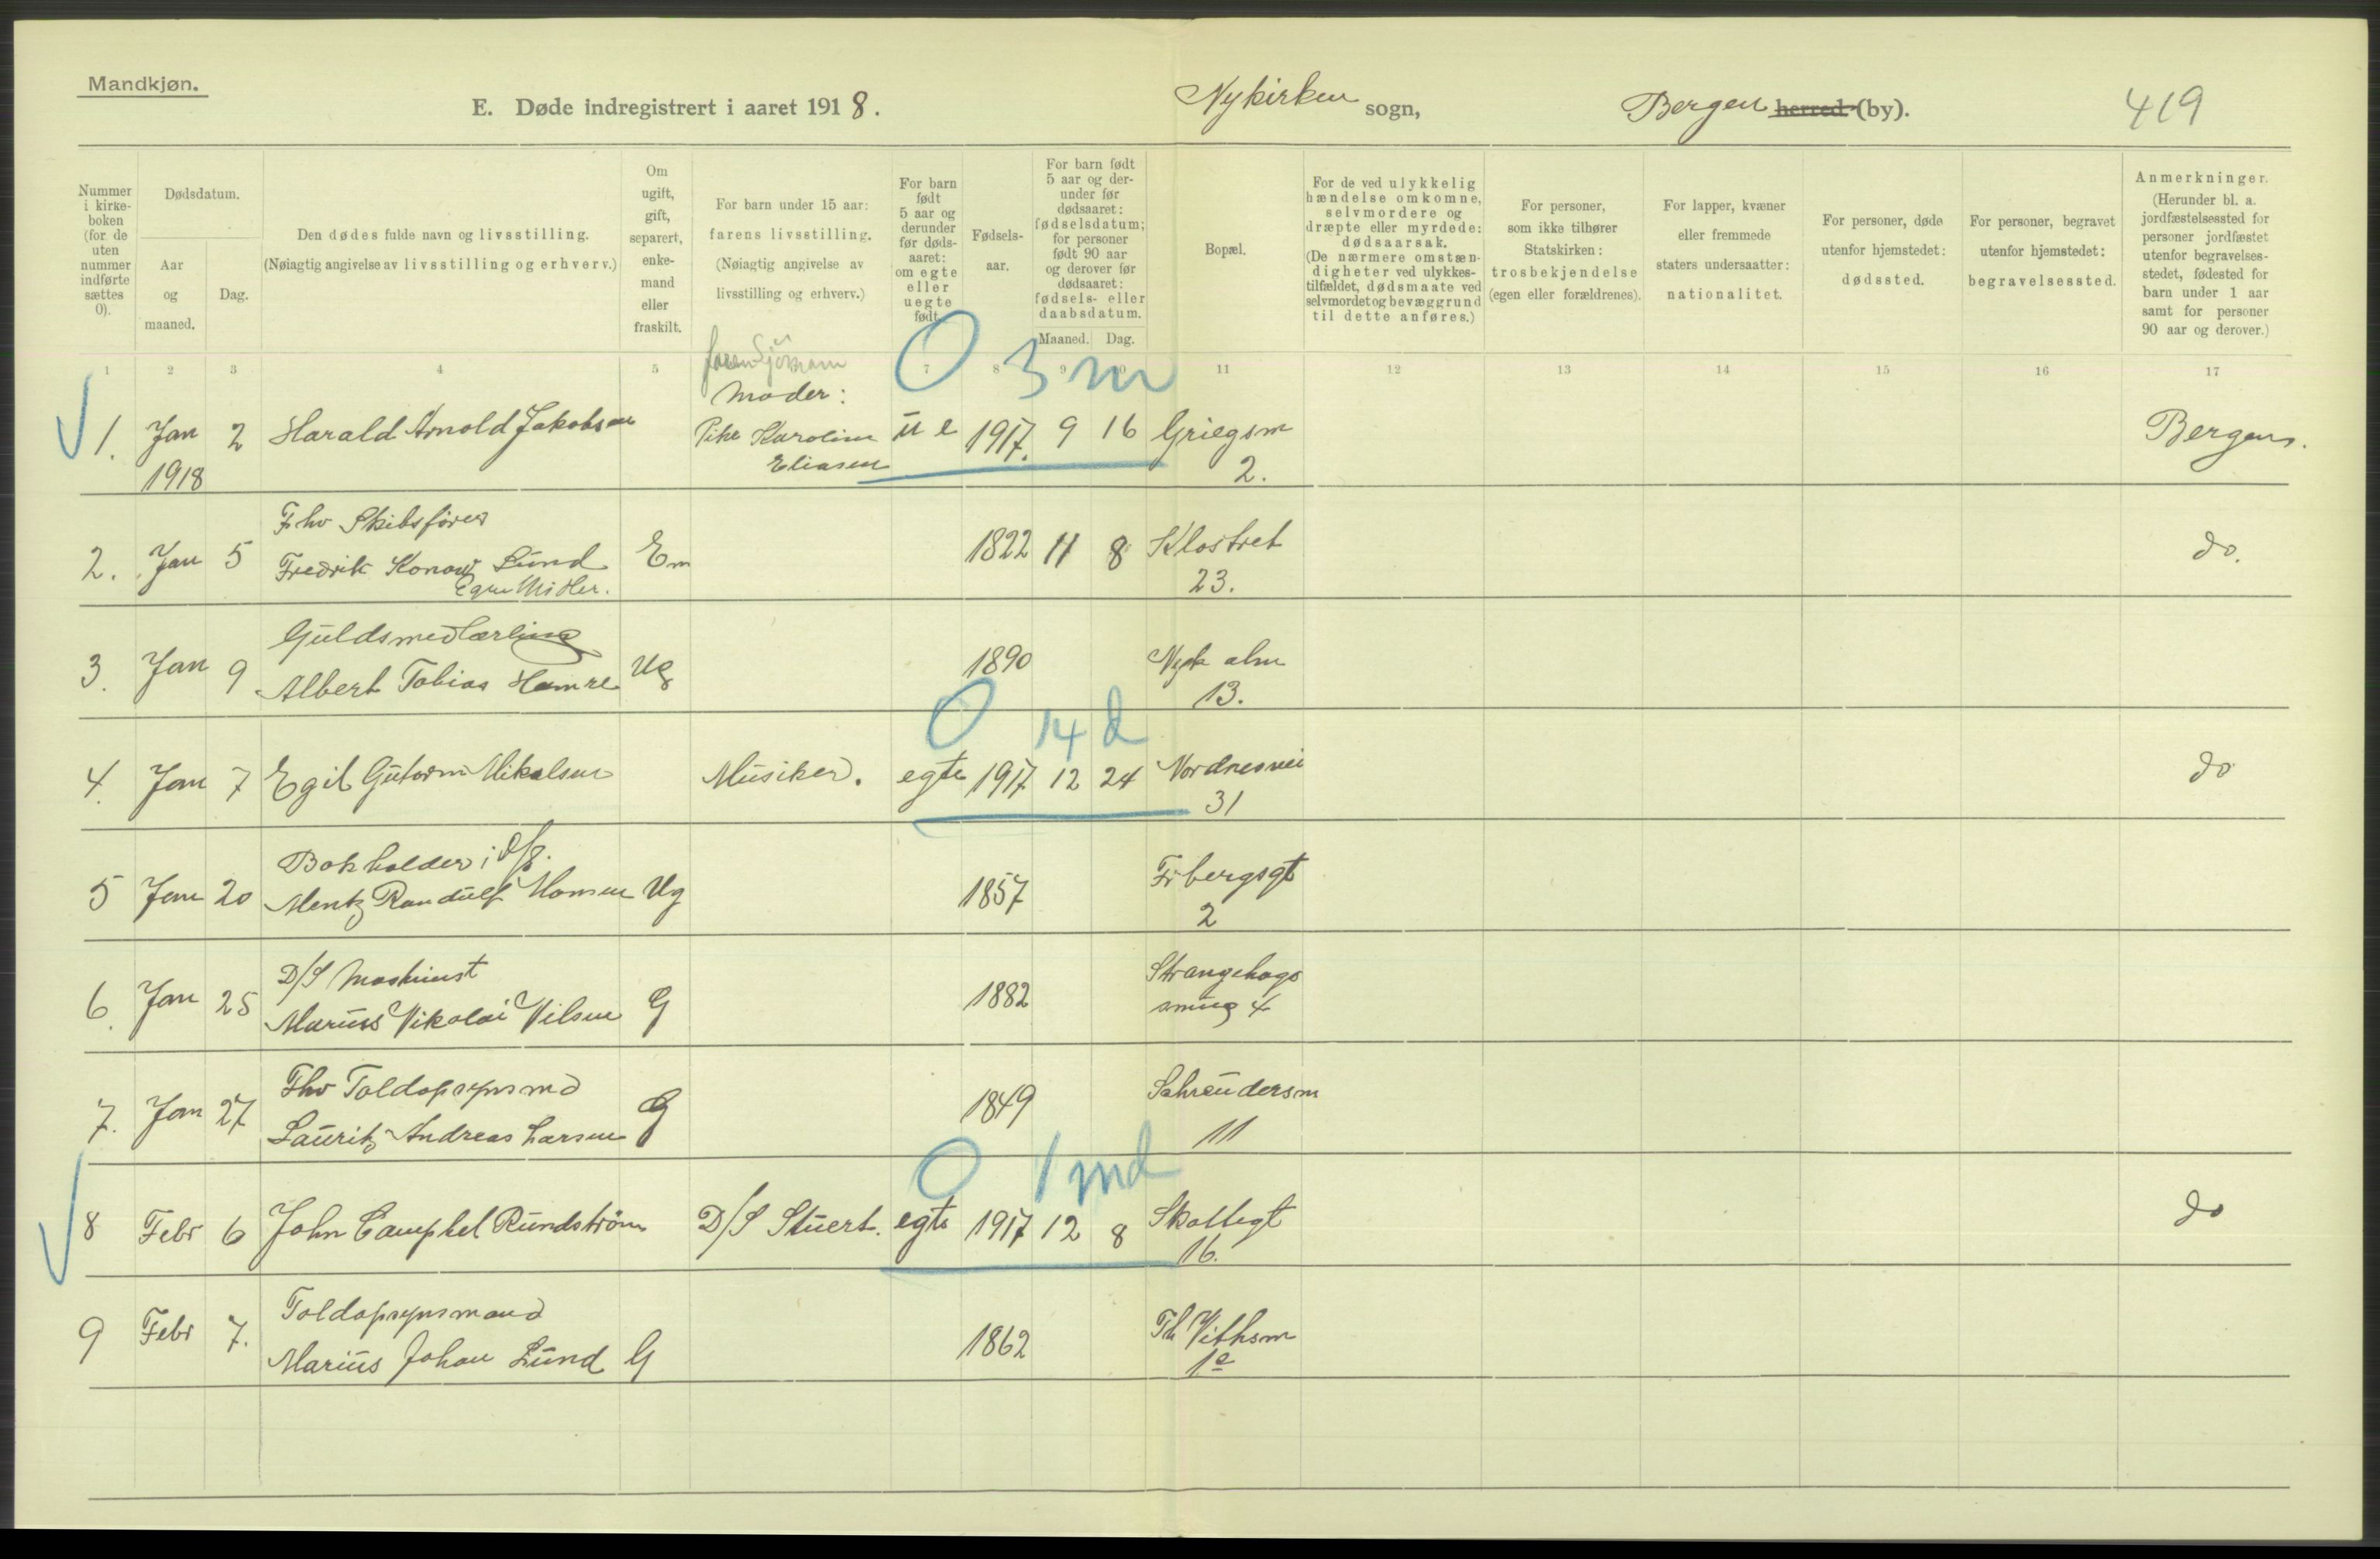 Mandkjøn.
E. Døde indregistrert i aaret 1918.
Nykirken sogn,
Bergen herred (by).
419
Nummer i kirke-boken (for de uten nummer indførte sættes 0).
Dødsdatum.
Aar og maaned.
Dag.
Den dødes fulde navn og livsstilling.
(Nøiagtig angivelse av livsstilling og erhverv.)
Om ugift, gift, separert, enke-mand eller fraskilt.
For barn under 15 aar: farens livsstilling.
(Nøiagtig angivelse av livsstilling og erhverv.)
For barn født 5 aar og derunder før døds-aaret: om egte eller uegte født.
Fødsels-aar.
For barn født 5 aar og der-under før dødsaaret: fødselsdatum; for personer født 90 aar og derover før dødsaaret: fødsels- eller daabsdatum.
Maaned. Dag.
Bopæl.
For de ved ulykkelig hændelse omkomne, selvmordere og dræpte eller myrdede: dødsaarsak.
(De nærmere omstæn-digheter ved ulykkes-tilfældet, dødsmaate ved selvmordet og bevæggrund til dette anføres.)
For personer, som ikke tilhører Statskirken: trosbekjendelse (egen eller forældrenes).
For lapper, kvæner eller fremmede staters undersaatter: nationalitet.
For personer, døde utenfor hjemstedet: dødssted.
For personer, begravet utenfor hjemstedet: begravelsessted.
Anmerkninger.
(Herunder bl. a. jordfæstelsessted for personer jordfæstet utenfor begravelses-stedet, fødested for barn under 1 aar samt for personer 90 aar og derover.)
1 2 3 4 5 7 8 9 10 11 12 13 14 15 16 17
faren Sjömann
0 3 m
Moder:
1. Jan 2 Harald Arnold Jakobsen Pike Karoline ue 1917. 9 16 Griegsm Bergen.
1918 Eliasen 2.
Fhv Skibsfører
2. Jan 5 Fredrik Konow Lund Em 1822 11 8 Klostret do.
Egne Midler. 23.
Guldsmedlærling
3. Jan 9 Albert Tobias Hamre Ug 1890 Nyk alm
13.
0 14 d
4. Jan 7 Egil Gutorm Mikalsen Musiker. egte 1917 12 24 Nordnesvei do
31
Bokholder i D/S.
5 Jan 20 Mentz Randulf Monsen Ug 1857 Frbergsgt
2
D/S Maskinist
6. Jan 25 Marius Nikolai Nilsen G 1882 Strangehags
smug 4
Fhv Toldopsynsmd
7. Jan 27 Lauritz Andreas Larsen G 1849 Schreudersm
11
0 1 md
8 Febr 6 John Camphel Rundström D/S Stuert. egte 1917 12 8 Skottegt do
16.
Toldopsynsmand
9 Febr 7. Marius Johan Lund G 1862 Th Vithsm
1a